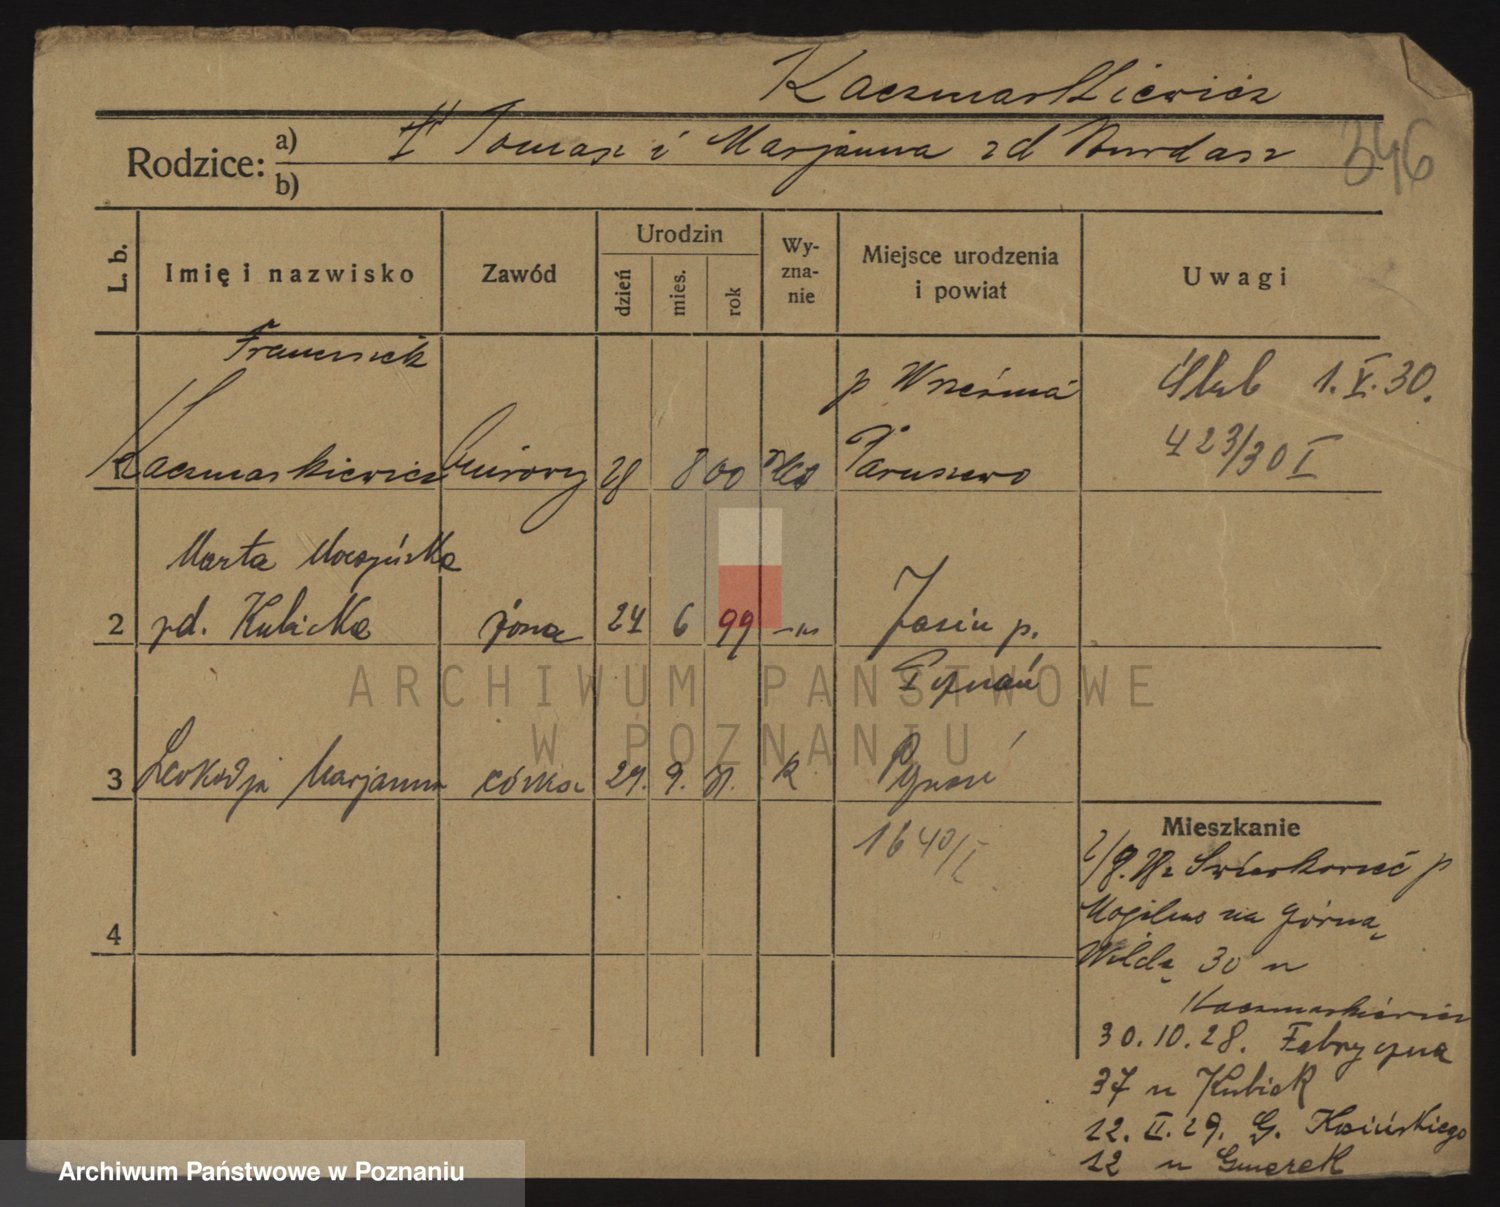 Kaczmarkiewicz
346
Rodzice: a) Tomasz i Marjanna zd Burdasz
b)
L. b.
Imię i nazwisko
Zawód
Urodzin
dzień
mies.
rok
Wy-
zna-
nie
Miejsce urodzenia
i powiat
Uwagi
Franciszek
p Września
Ślub 1.V.30.
423/30 I
Kaczmarkiewicz biurowy 28 8 00 Paruszewo
Marta
2 zd. Kubicka żona 24 6 99 -"- Jasin p.
Poznań
3 Leokadja Marjanna córka 29. 9. k Poznań
1640/I
4
Mieszkanie
p
Mogilno na Górną
Wildę 30 u
Kaczmarkiewicz
30.10.28. Fabryczna
37 u Kubiak
12.II.29. G. Kosińskiego
12 u Gmerek
ARCHIWUM PAŃSTWOWE
W POZNANIU
Archiwum Państwowe w Poznaniu